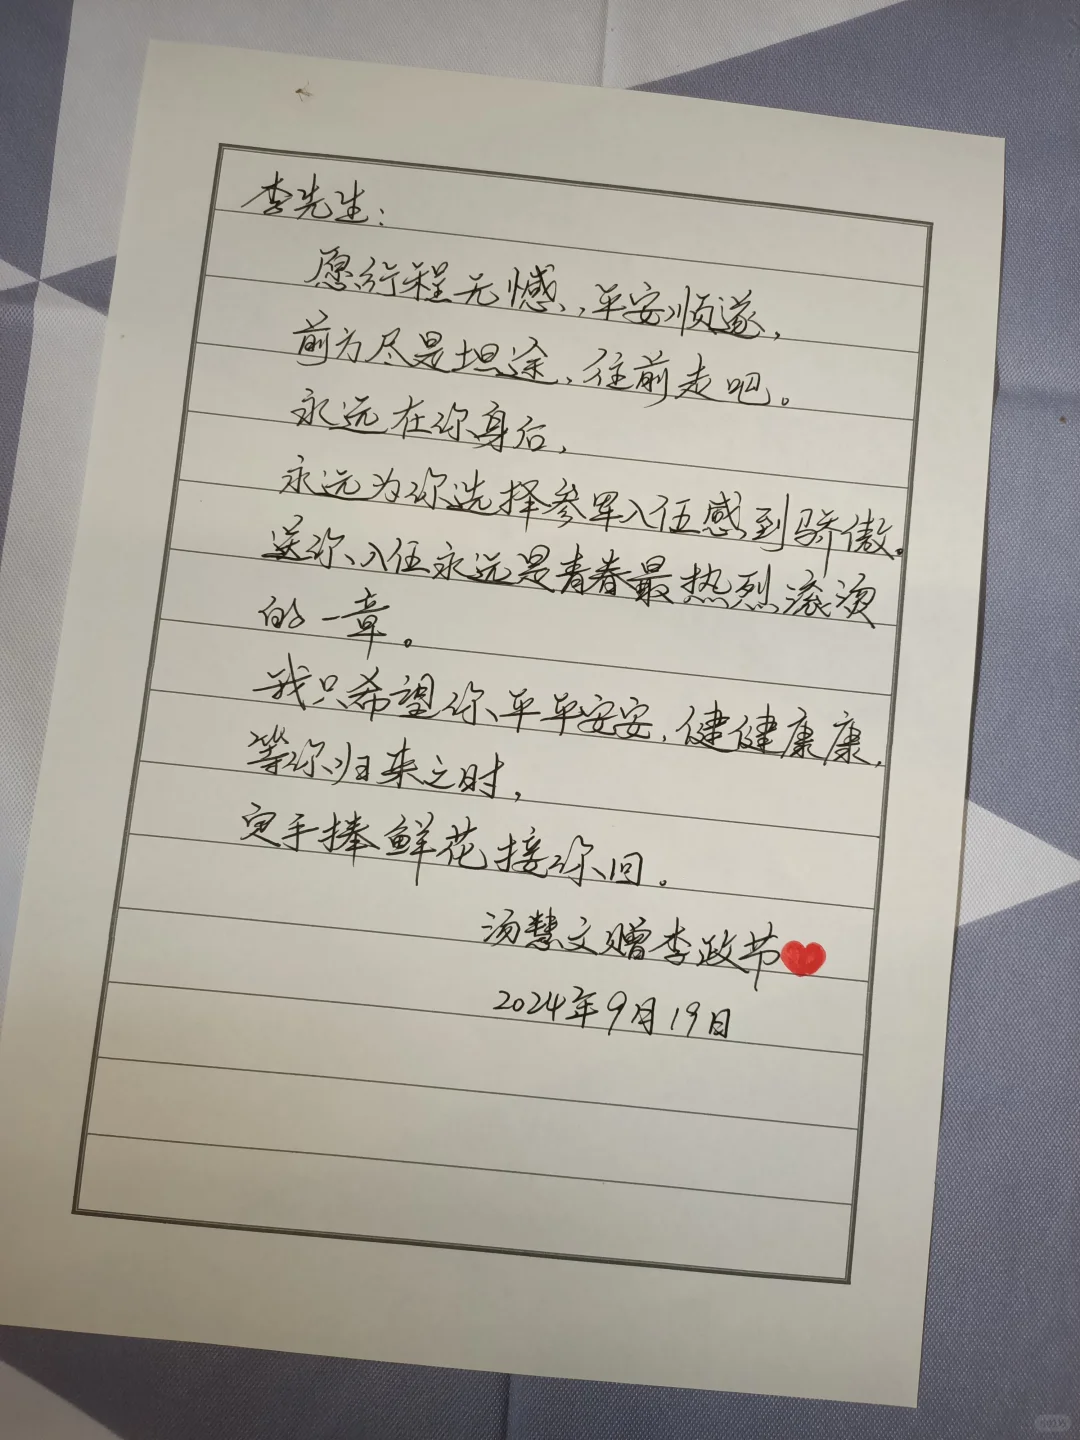 李先生：
愿行程无憾，平安顺遂，
前方尽是坦途，往前走吧。
永远在你身后，
永远为你选择参军入伍感到骄傲。
送你入伍永远是青春最热烈滚烫
的一章。
我只希望你平平安安，健健康康，
等你归来之时，
定手捧鲜花接你回。
汤慧文赠李政节
2024年9月19日